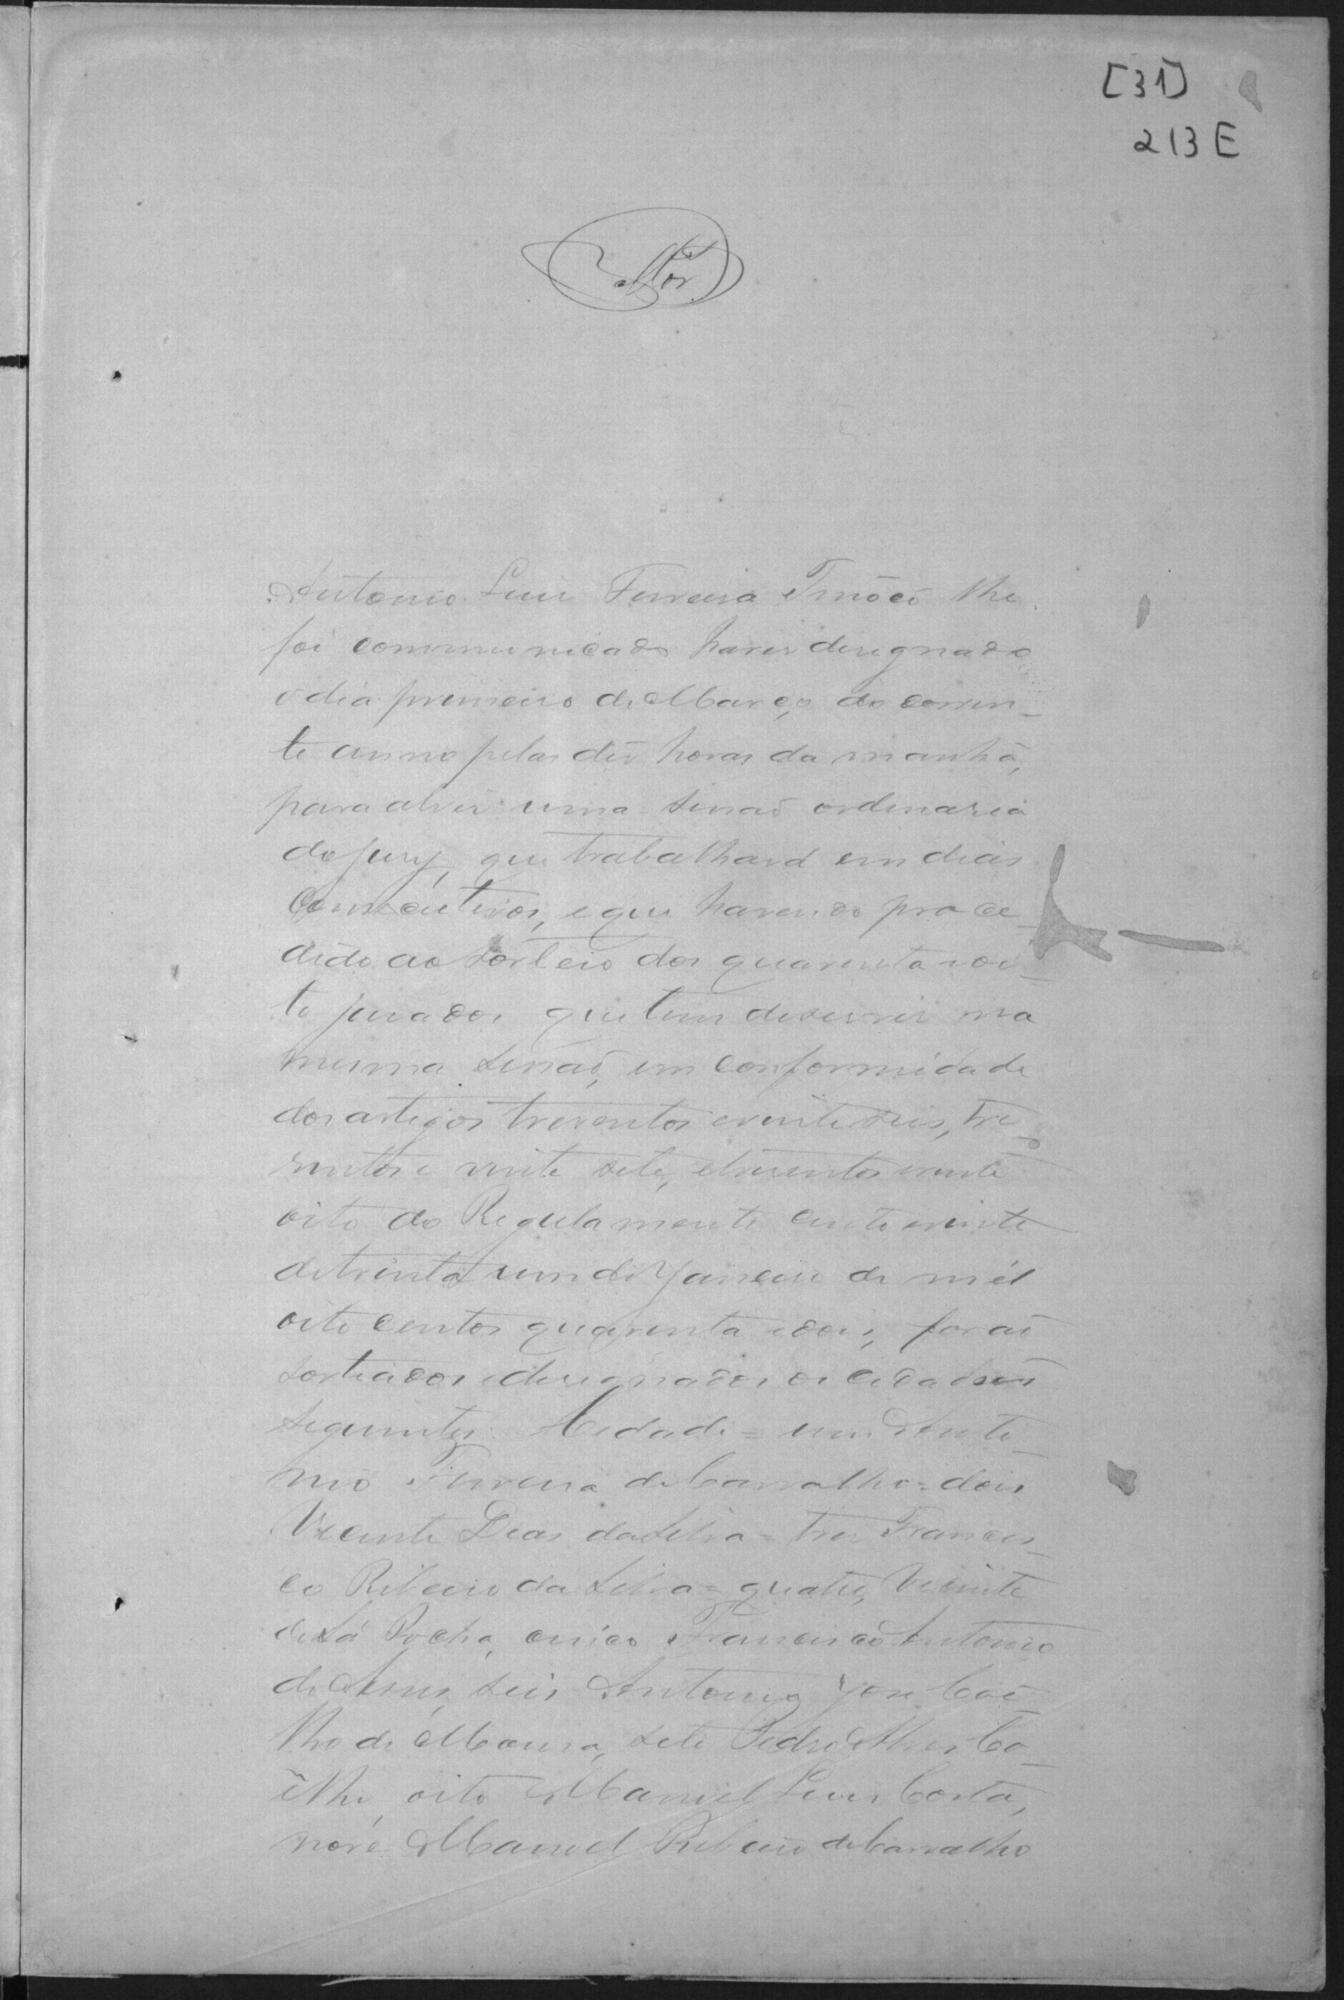 [31]
213 E
Antonio Luis Ferreira Tinôco lhe
foi communicado haver designado
o dia primeiro de Março do corren-
te anno pelas dez horas da manhã,
para abrir uma sessaõ ordinaria
do jury, que trabalhará em dias
consecutivos, e que havendo proce-
dido ao sorteio dos quarenta e oi-
to jurados que tem de servir na
mesma sessaõ, em conformidade
dos artigos trezentos e vinte seis, tre-
sentos e vinte sete, e tresentos e vinte
oito do Regulamento
de trinta e um de Janeiro de mil
oito centos quarenta e dois, foraõ
sorteados e designados os cidadãos
seguintes. Cidade = um Anto-
nio Ferreira de Carvalho = dois
Vicente Dias da Silva = tres Francis-
co Ribeiro da Silva = quatro, Vicente
de Sá Rocha, cinco Francisco Antonio
de Jesus, seis Antonio José Coe-
lho de Moura, sete Pedro Alves Co-
elho, oito Manoel Luis Costa,
nove Manoel Ribeiro de Carvalho